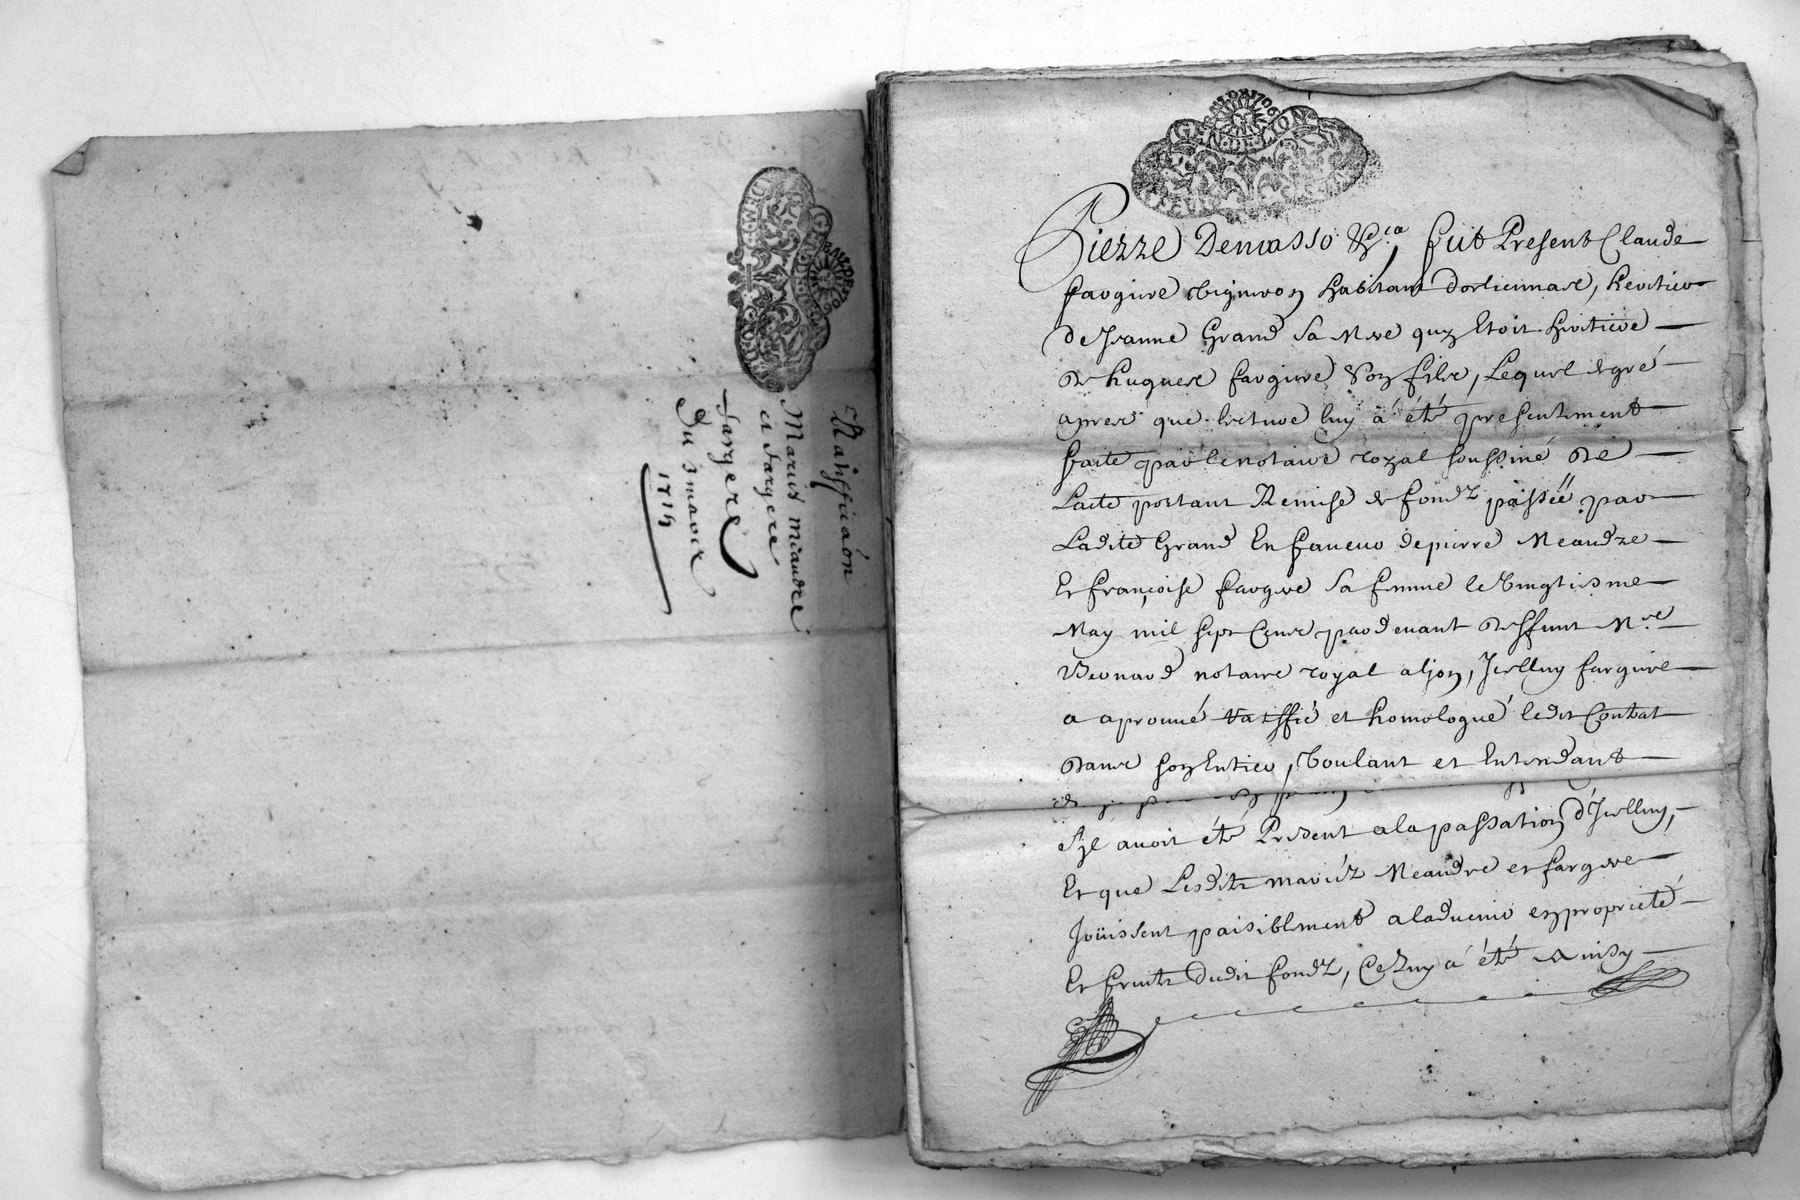 Ratiffica͂on
Mariés miandre
et fargere
fargere
Du 3 mavir
1714
GENERAL DE 1706
GEN DE LION
Pierre Demasso &ca, fut Present Claude
fargiere vigneron habitant dorliennas, heritier
de Jeanne Grand sa Mere quy Etoit heritiere
de hugues fargiere son fils, Lequel de gré
apres que lecture luy à été presentement
faite par le notaire royal soussiné de
Lacte portant Remise de fondz passée par
Ladite Grand En faveur de pierre Meandre
Et françoise fargere sa femme le vingtiesme
May mil sept Cens pardevant deffunt Mre
Bernard notaire royal a lyon, Jcelluy fargiere
a aprouué ratiffié et homologué ledit Contrat
dans son Entier, Voulant et Entendant
s'il auoit été Present a la passation d'Jcelluy,
Et que Lesdits mariéz Meandre et fargere
Joüissent paisiblement a laduenir en proprieté
Et fruits dudit fondz, Ce luy à été Ainsy